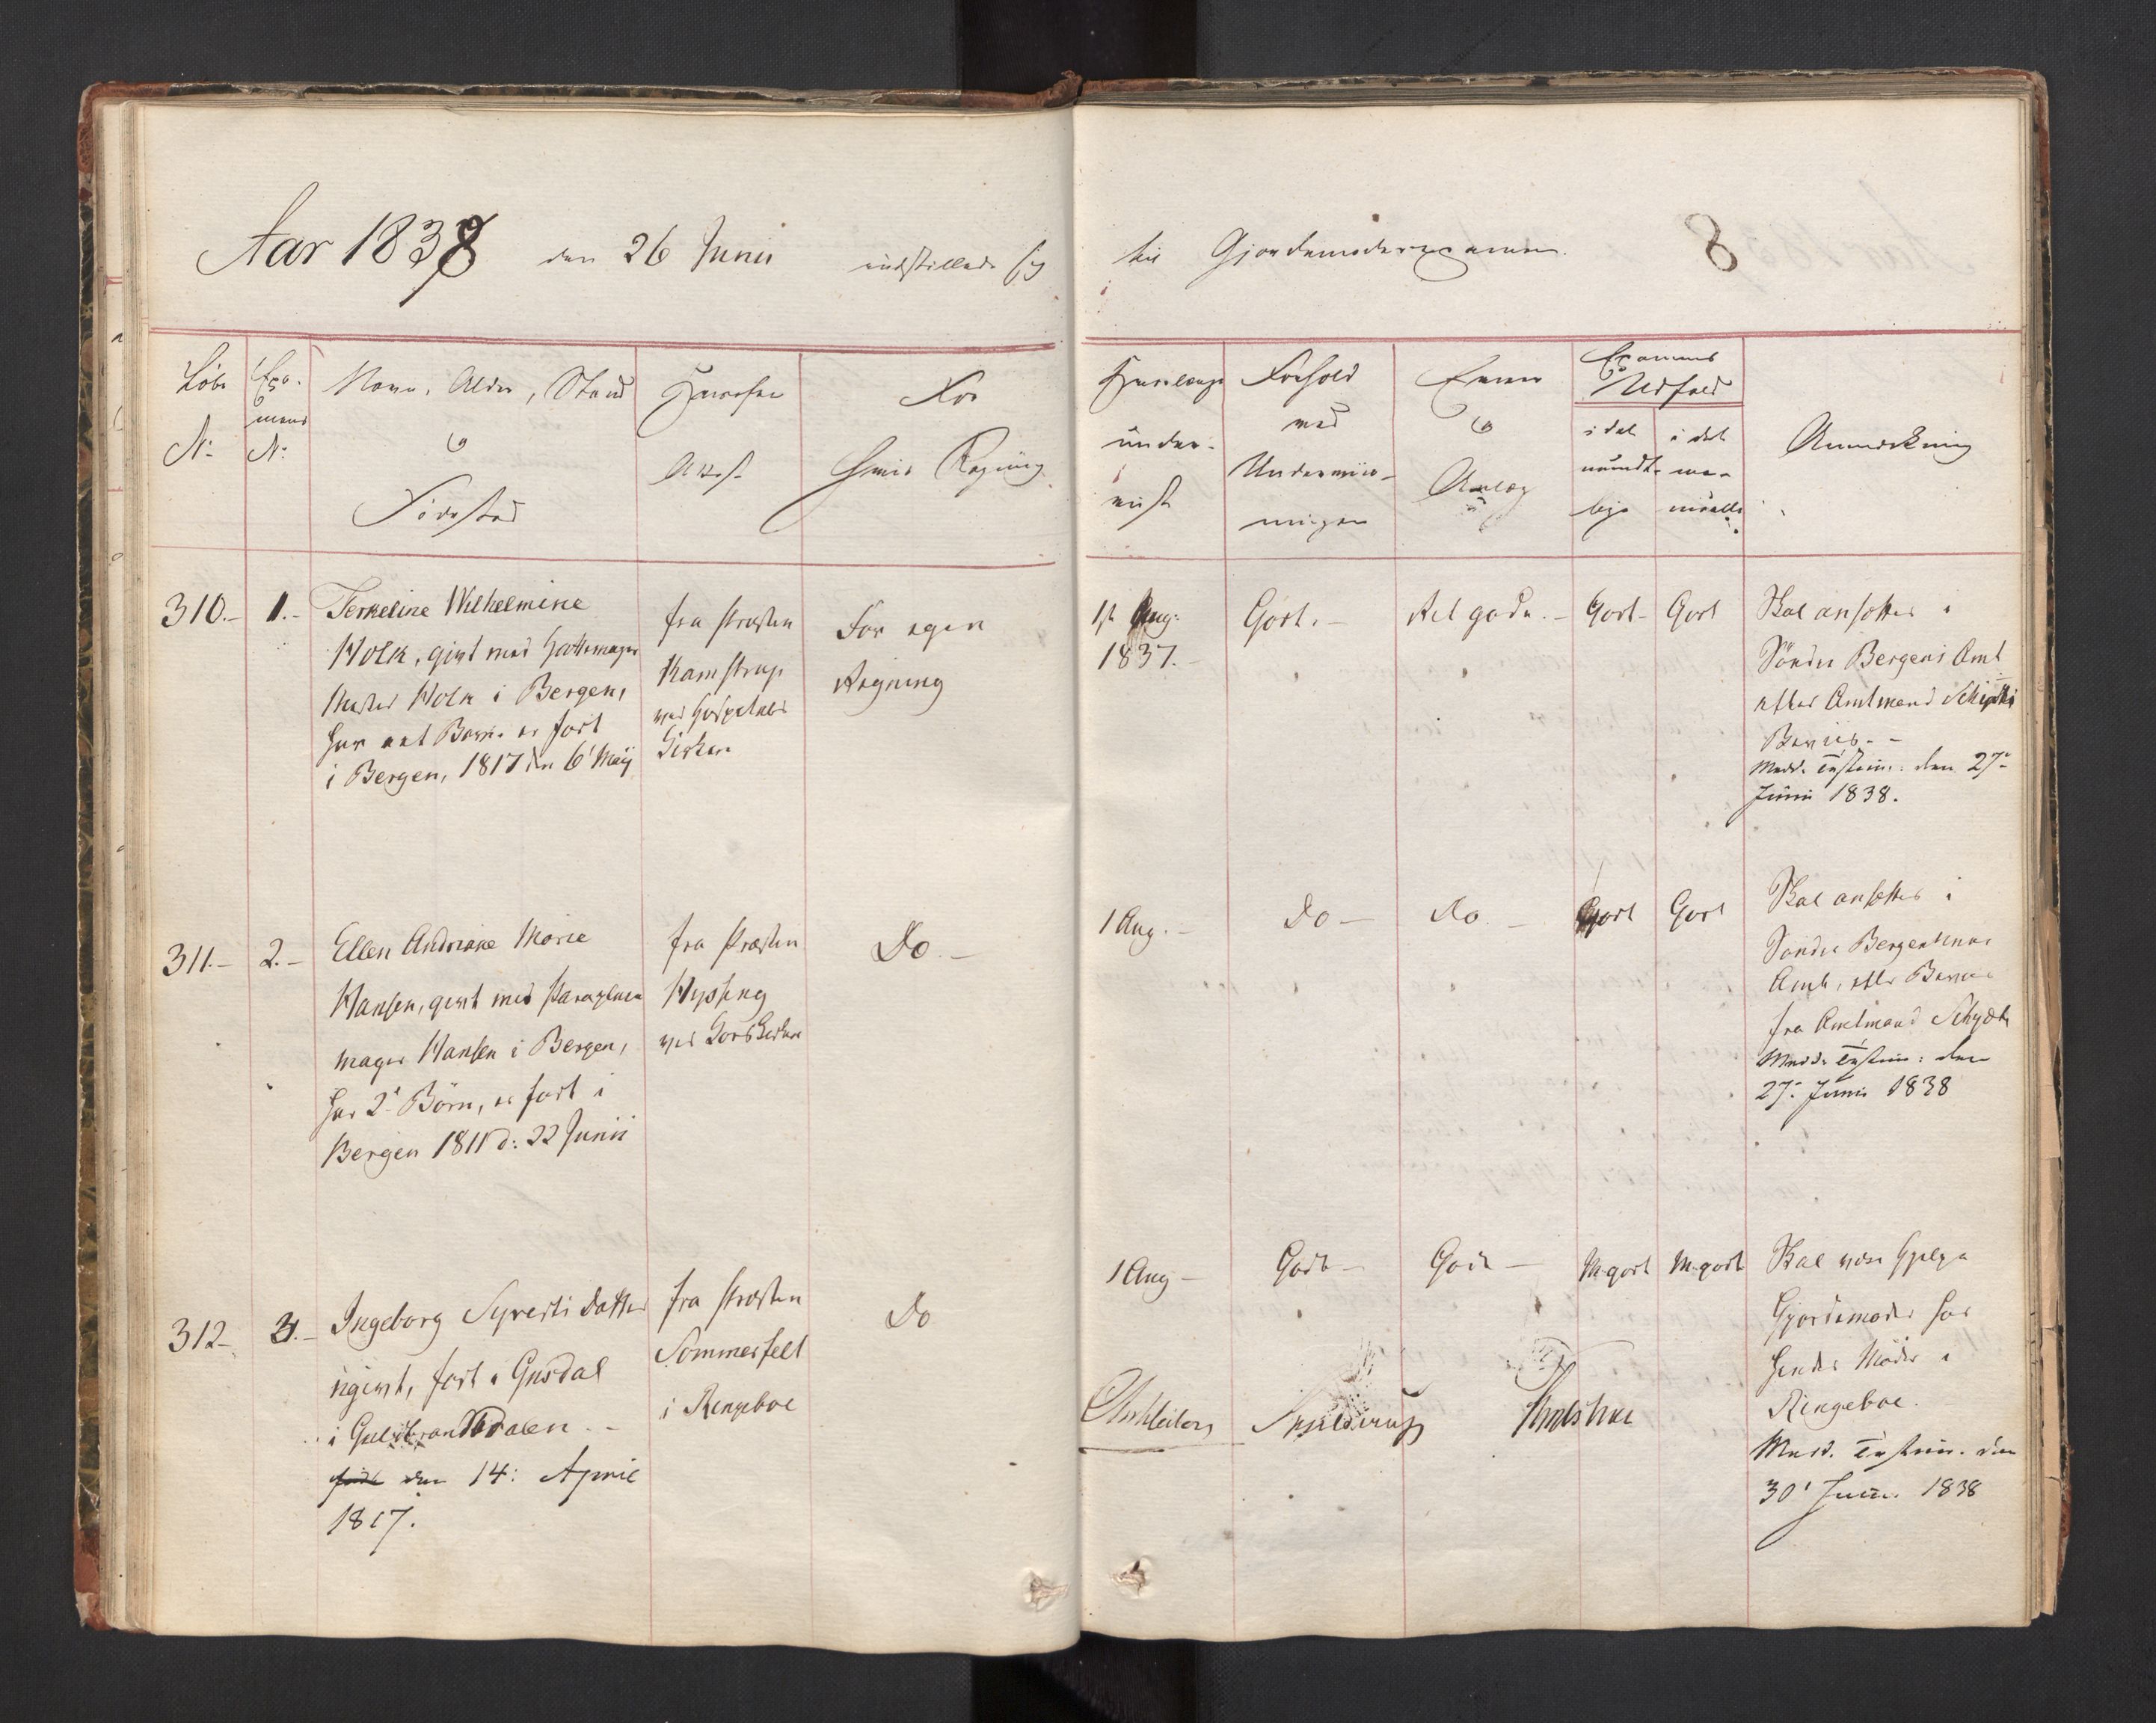 Aar 1838 den 26 Junii indstillede sig
til Gjordemoderexamen.
8
Løbe
No
Exa-
mens
No
Navn, Alder, Stand
&
Fødested
Hvorfra
Attest
For
hvis Regning
Hvorlænge
under-
viist
Forhold
med
Underviis-
ningen
Evner
&
Anlæg
Examens
Udfald
i det
mundt-
lige
i det
ma-
nuelle
Anmerkning
310.-
1.-
Terkeline Wilhelmine
Holk, givt med Hattemager
Holk i Bergen,
har eet Barn. er født
i Bergen, 1817 den 6' Maij
fra Præsten
Kamstrup
ved Hospitals
Kirken
For egen
Regning
1ste Aug:
1837.-
Godt.-
Ret gode.-
Godt-
Godt
Skal ansættes i
Sönder Bergens Amt
efter Amtmand
Beviis.-
Medd. Testim: den 27-
Junii 1838.
311.-
2.-
Ellen Andreane Marie
Hansen, givt med Paraplue
mager Hansen i Bergen,
har 2 Børn, er født i
Bergen 1811 d: 22 Junii
fra Præsten
Hysing
ved Korskirken
Do.-
1 Aug.-
Do-
Do.-
Godt
Godt
Skal ansættes i
Sönder Bergenhuus
Amt, efter Beviis
fra Amtmand
Medd. Testim: den
27- Junii 1838
312-
3.-
Ingeborg Syverts Datter
ugivt, født i Gusdal
i Guldbrandsdalen.-
født den 14: April
1817.
fra Præsten
Sommerfelt
i Ringeboe
Do
1 Aug-
Gode-
Gode-
M.godt
M.godt
Skal være Hjelpe
Gjordemoder hos
hendes Moder i
Ringeboe.
Medd. Testim. den
30' Junii 1838